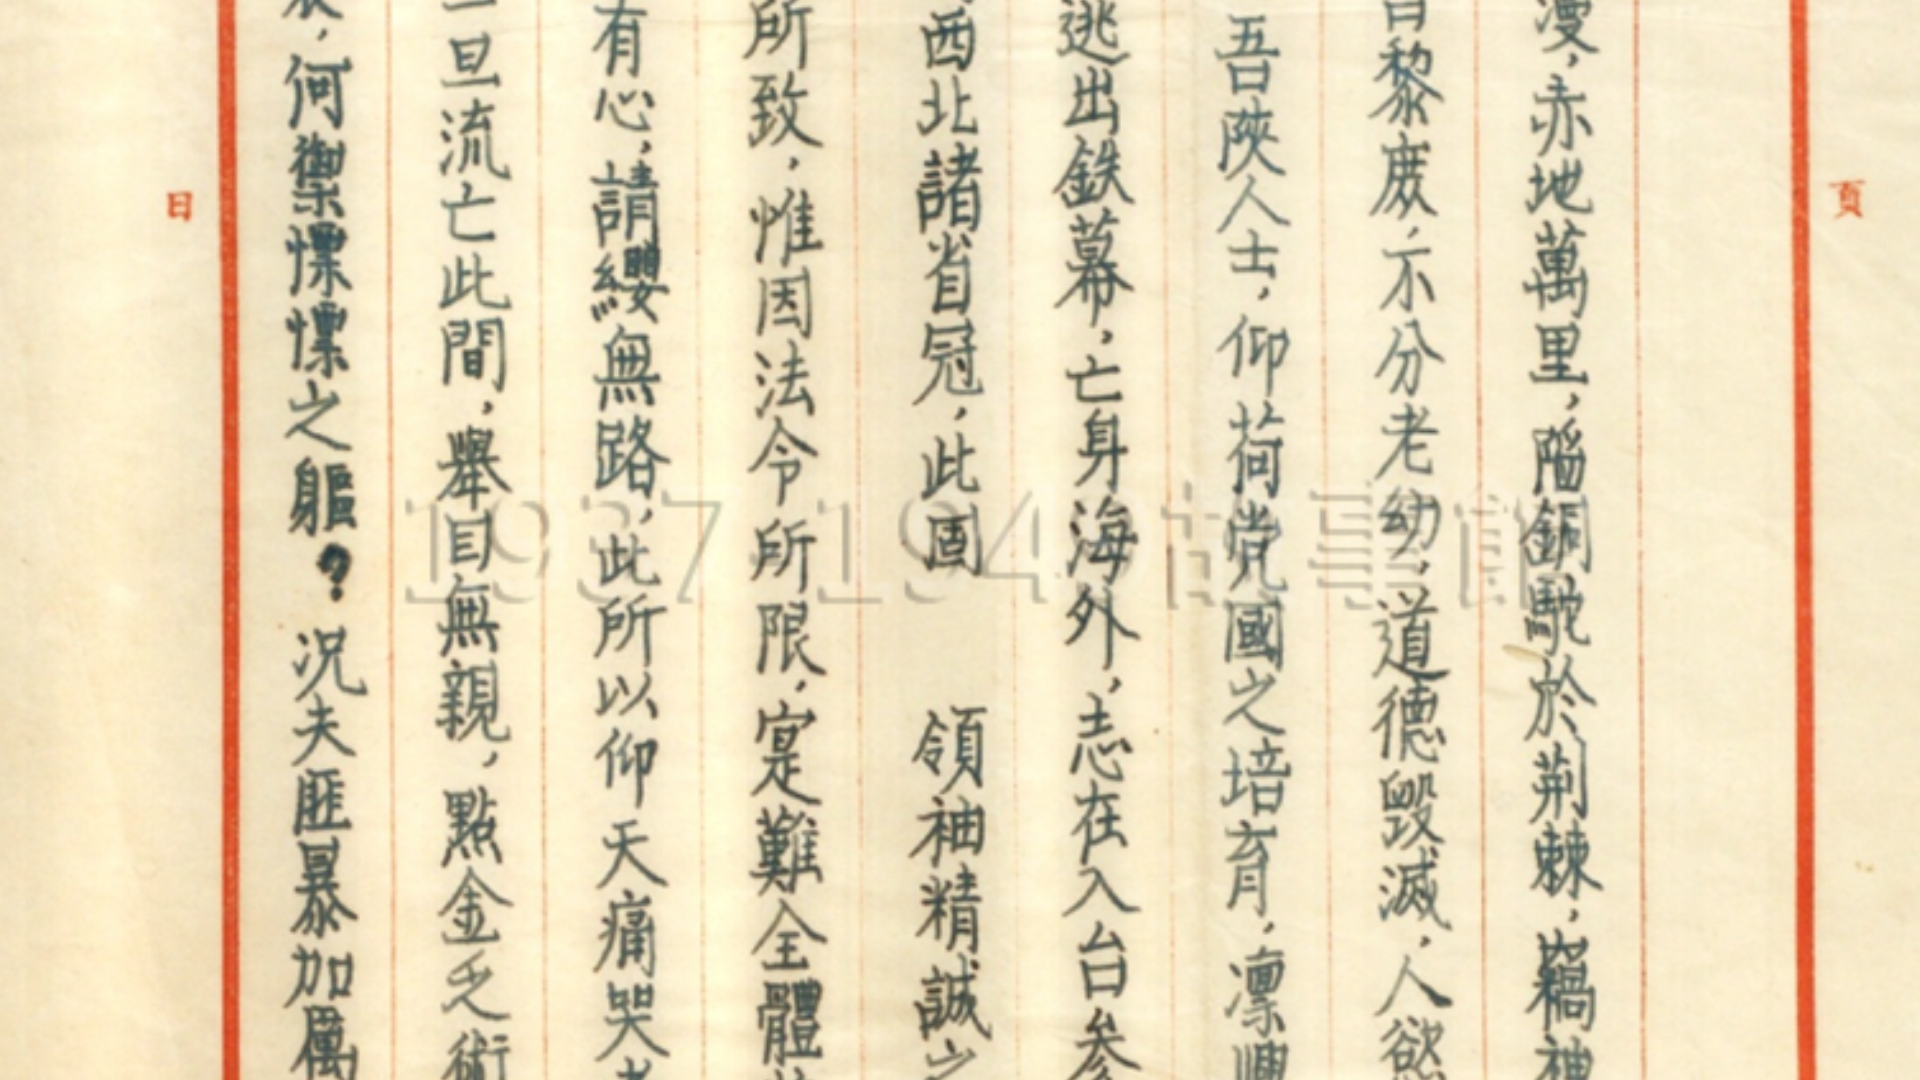 頁
漫，赤地萬里，陷銅駝於荊棘，竊神
黎庶，不分老幼，道德毀滅，人慾
吾陝人士，仰荷党國之培育，凛
逃出鉄幕，亡身海外，志在入台参
西北諸省冠，此固　領袖精誠之
所致，惟因法令所限，寔難全體
有心，請纓無路，此所以仰天痛哭者
旦流亡此間，舉目無親，點金乏術
，何禦慓慓之軀？况夫匪暴加厲
日
1937 1949